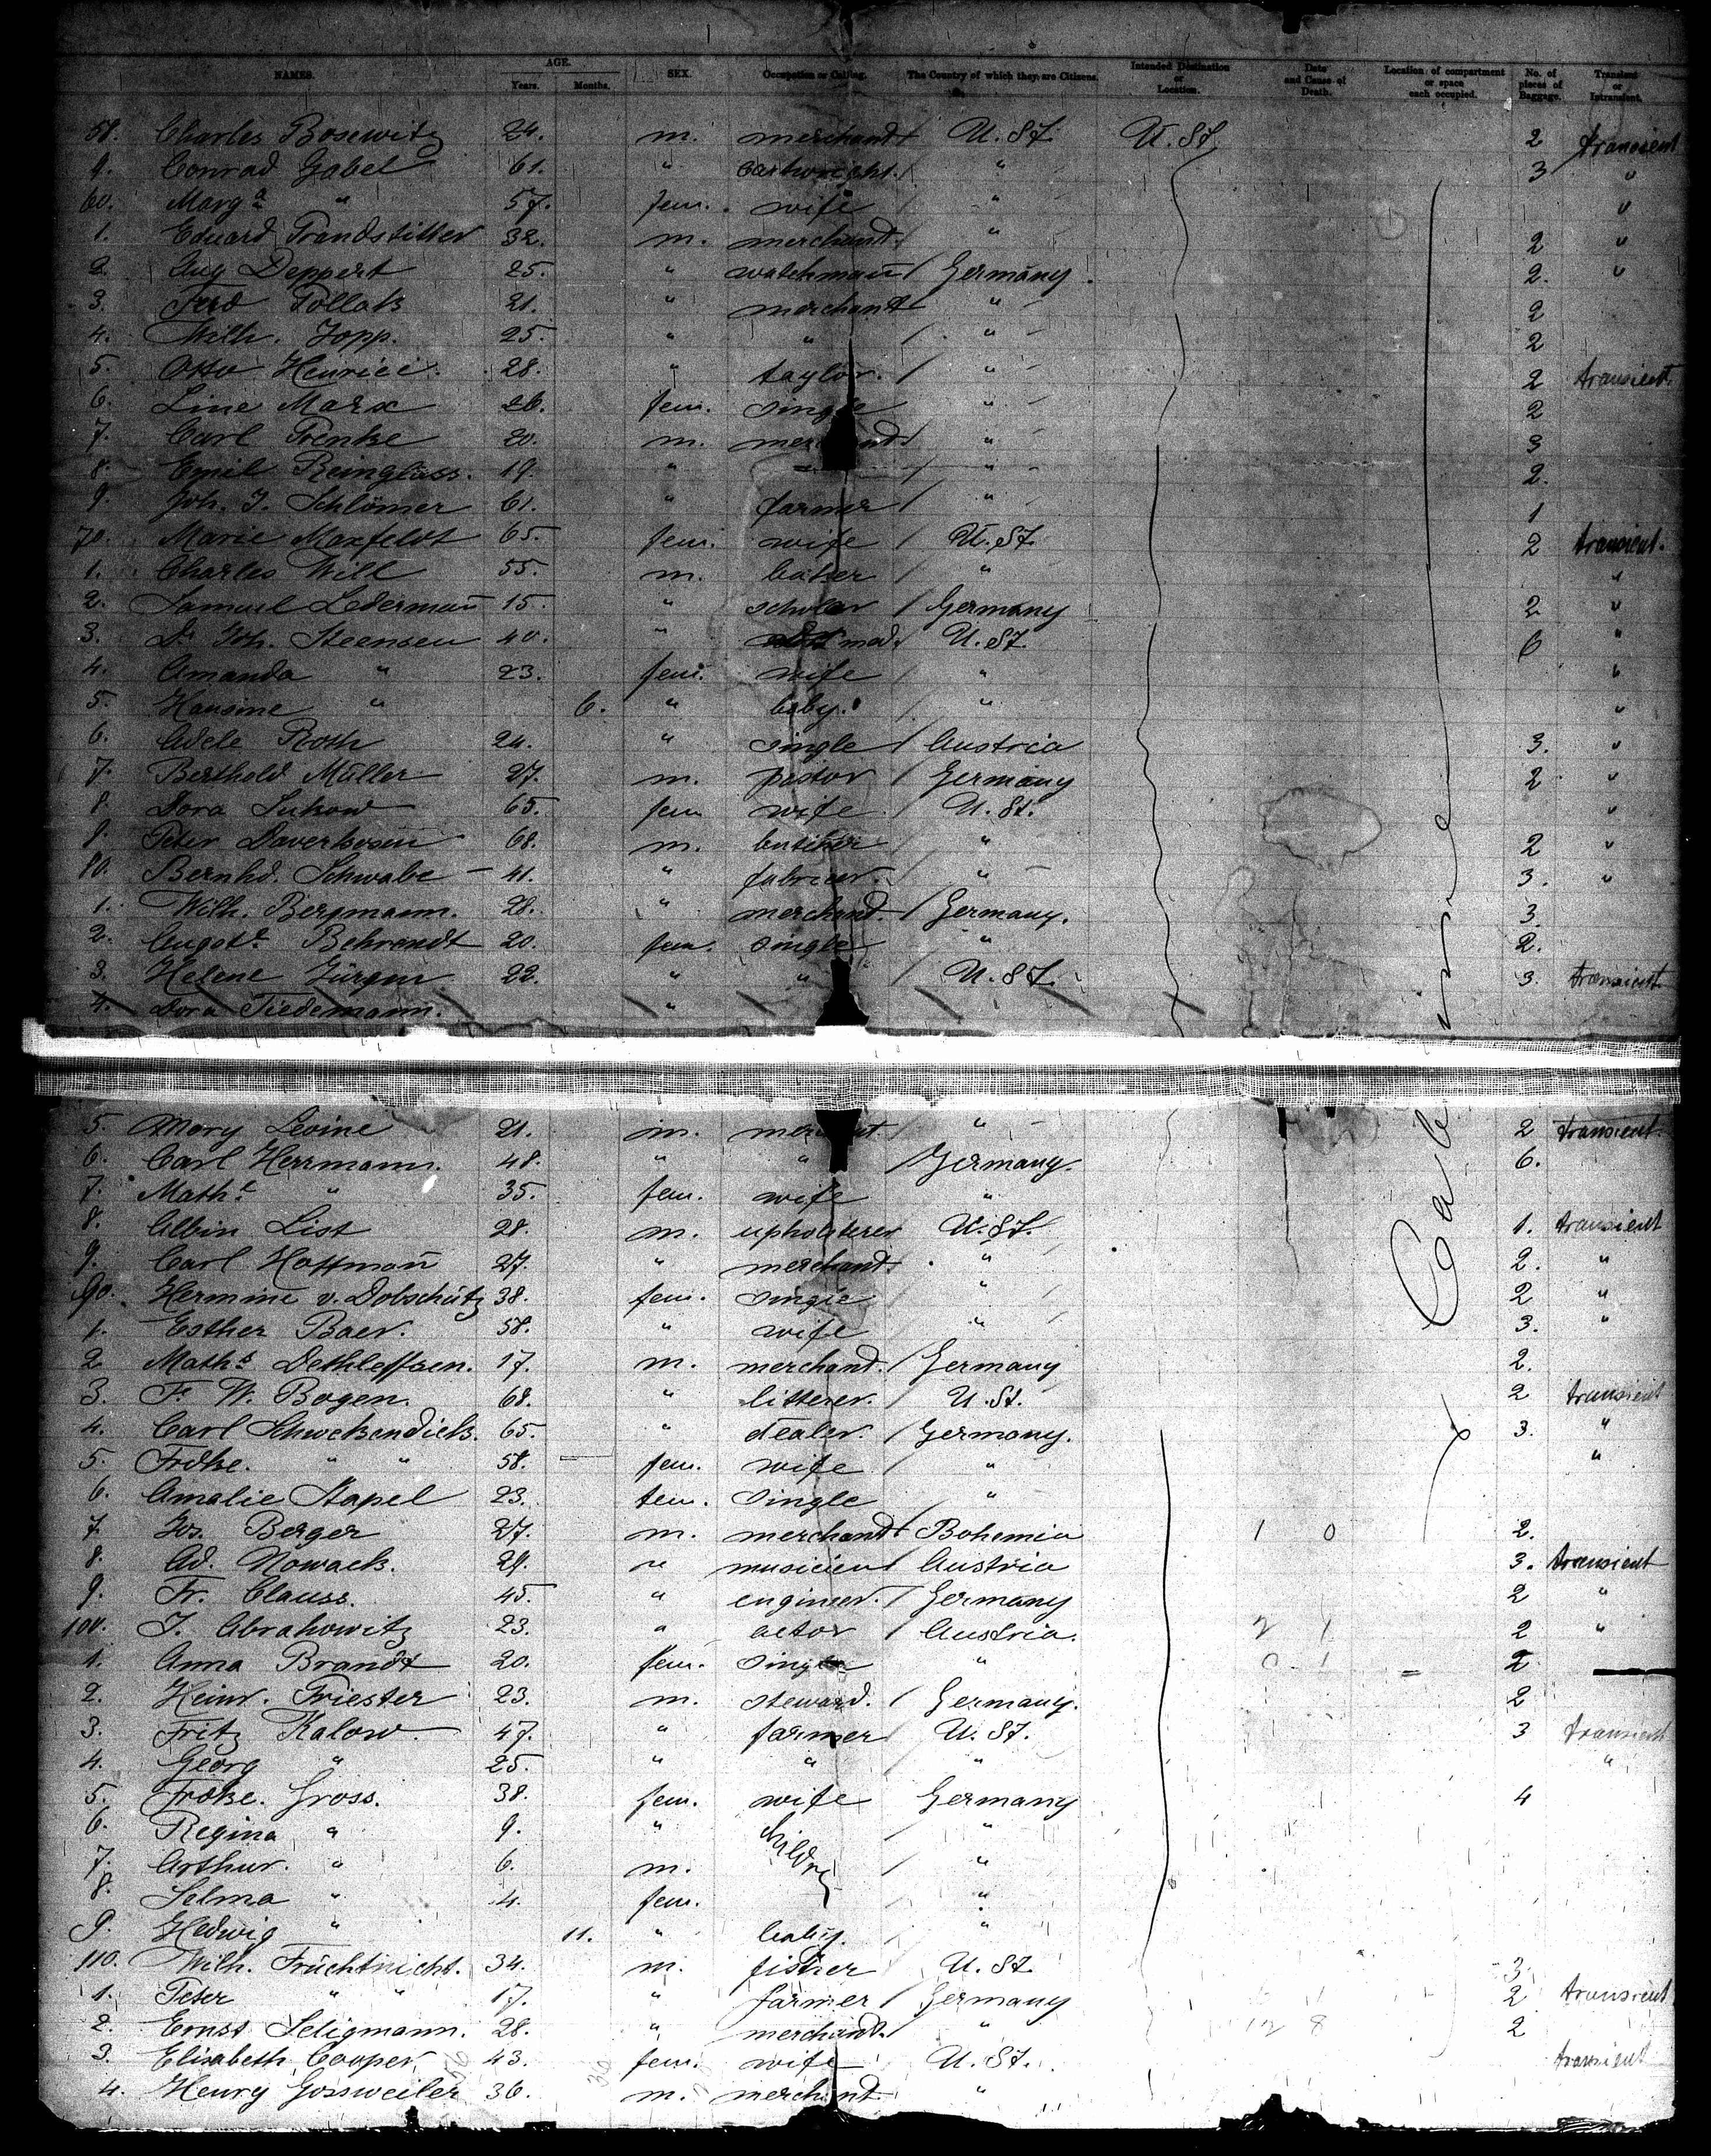 NAMES. AGE. Years. Months. SEX. Occupation or Calling. The Country of which they are Citizens. Intended Destination or Location. Date and Cause of Death. Location of compartment or space each occupied. No. of pieces of Baggage. Transient or Intransient.
58. Charles Bosewitz 24. m. merchand U. St. U. St. 2 transient
9. Conrad Gabel 61. " " 3 "
60. Marg.a " 57. fem. wife " "
1. Eduard Brandstitter 32. m. merchand. " 2 "
2. Aug Deppert 25. " watchmann Germany. 2. "
3. Ferd Pollak 21. " merchand " 2
4. Wilh. Jopp. 25. " " " 2
5. Otto Henrici. 28. " taylor. " 2 transient.
6. Line Marx 26. fem. single " 2
7. Carl Trenke 20. m. merchand " 3
8. Emil Reinglass. 19. " " " 2.
9. Joh. J. Schlömer 61. " farmer " 1
70. Marie Maxfeldt 65. fem. wife U. St. 2 transient.
1. Charles Will 55. m. baker " "
2. Samuel Ledermann 15. " scholar Germany 2 "
3. Dr Joh. Steensen 40. " med. U. St. 6 "
4. Amanda " 23. fem. wife " "
5. Hansine " 6. " baby. " "
6. Adele Roth 24. " single Austria 3. "
7. Berthold Müller 27. m. pastor Germany 2 "
8. Dora Lukow 65. fem wife U. St. "
9. Peter Daverkosen 68. m. butcher " 2 "
80. Bernhd. Schwabe 41. " fabricer. " 3. "
1. Wilh. Bergmann. 28. " merchand. Germany. 3
2. Augste Behrendt 20. fem. single " 2.
3. Helene Jürgen 22. " " U. St. 3. transient.
4. Dora Tiedemann. "
5. Mory Levine 21. m. merchant. " 2 transient.
6. Carl Herrmann. 48. " " Germany. 6.
7. Mathe " 35. fem. wife "
8. Albin List 28. m. upholsterer U. St. 1. transient
9. Carl Hoffmann 27. " merchand. " 2. "
90. Hermine v. Dobschütz 38. fem. single " 2 "
1. Esther Baer. 58. " wife " 3. "
2 Maths Dethleffsen. 17. m. merchand. Germany 2.
3. F. W. Bogen. 68. " litterer. U. St. 2 transient
4. Carl Schwekendiek. 65. " dealer. Germany. 3. "
5. Frdke. " " 58. fem. wife " "
6. Amalie Stapel 23. fem. single "
7. Jos. Berger 27. m. merchand Bohemia 1 0 2.
8. Ad. Nowack. 29. " musicien Austria 3. transient
9. Fr. Clauss. 45. " engineer. Germany 2 "
100. J. Abrahowitz 23. " actor Austria. 2 1 2 "
1. Anna Brandt 20. fem. single " 0 1 2
2. Heinr. Priester 23. m. steward. Germany. 2
3. Fritz Kalow 47. " farmer U. St. 3 transient
4. Georg " 25. " " " "
5. Frdke. Gross. 38. fem. wife Germany 4
6. Regina " 9. " children "
7. Arthur. " 6. m. "
8. Selma " 4. fem. "
9. Hedwig " 11. " baby. "
110. Wilh. Früchtnicht. 34. m. fisher U. St. 3
1. Peter " " 17. " farmer Germany 2 transient
2. Ernst Seligmann. 28. " merchand. " 2
3. Elisabeth Cooper 43. fem. wife U. St. transient
4. Henry Gossweiler 36. m. merchant. "